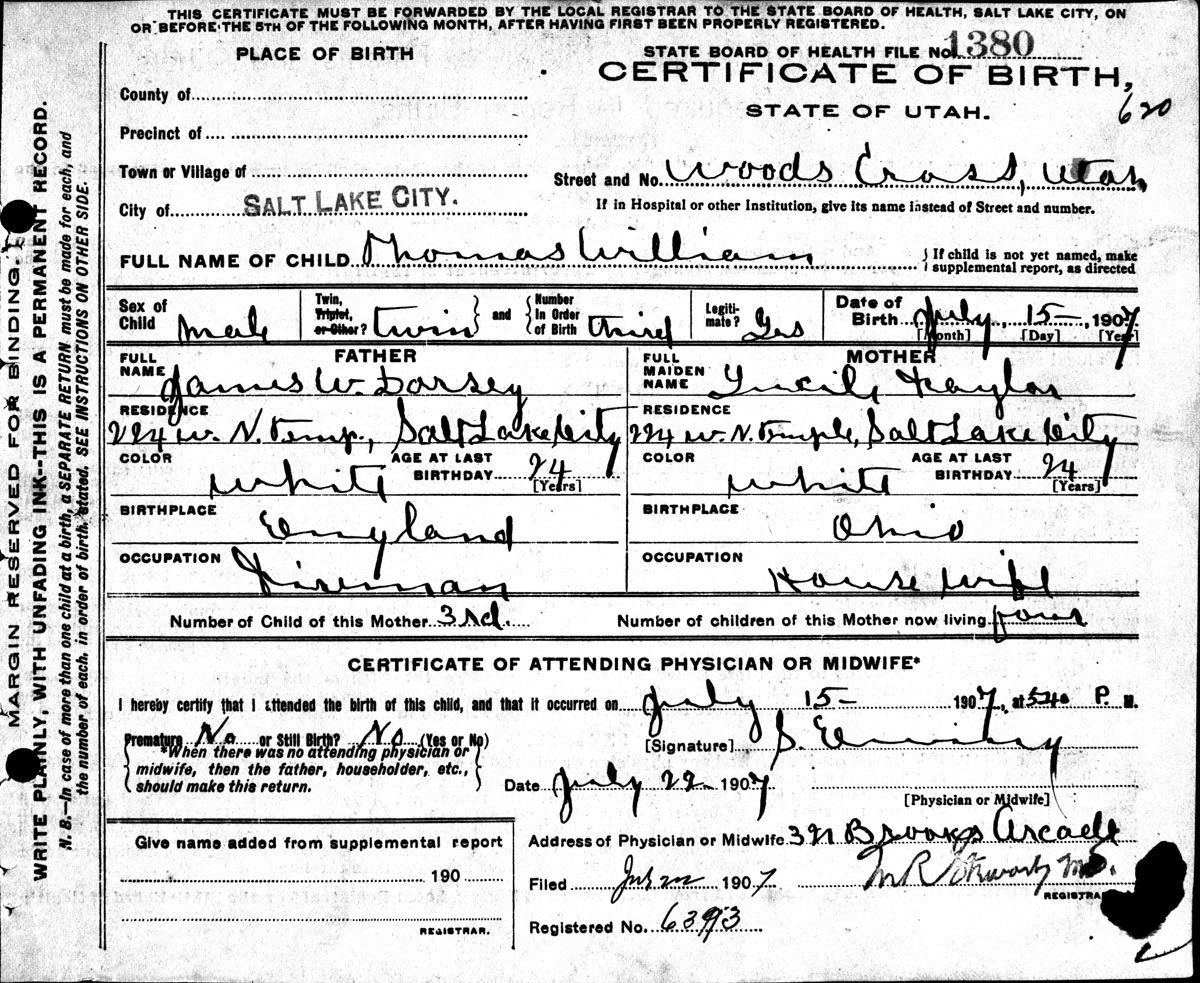 THIS CERTIFICATE MUST BE FORWARDED BY THE LOCAL REGISTRAR TO THE STATE BOARD OF HEALTH, SALT LAKE CITY, ON
OR BEFORE THE 5TH OF THE FOLLOWING MONTH, AFTER HAVING FIRST BEEN PROPERLY REGISTERED.
MARGIN RESERVED FOR BINDING.
WRITE PLAINLY, WITH UNFADING INK--THIS IS A PERMANENT RECORD.
N. B.--In case of more than one child at a birth, a SEPARATE RETURN must be made for each, and
the number of each, in order of birth, stated. SEE INSTRUCTIONS ON OTHER SIDE.
PLACE OF BIRTH
County of
Precinct of
Town or Village of
City of SALT LAKE CITY.
STATE BOARD OF HEALTH FILE No. 1380
CERTIFICATE OF BIRTH,
STATE OF UTAH.
620
Street and No. Woods Cross, Utah
If in Hospital or other Institution, give its name instead of Street and number.
FULL NAME OF CHILD Thomas William
If child is not yet named, make
supplemental report, as directed
Sex of Child Male
Twin, Triplet, or Other? twin and Number In Order of Birth third
Legitimate? Yes
Date of Birth July 15- 1907
[Month] [Day] [Year]
FATHER
FULL NAME James W. Dorsey
RESIDENCE
224 W. N. Temp., Salt Lake City
COLOR White AGE AT LAST BIRTHDAY 24 [Years]
BIRTHPLACE England
OCCUPATION Fireman
MOTHER
FULL MAIDEN NAME
RESIDENCE
224 W. N. Temple, Salt Lake City
COLOR White AGE AT LAST BIRTHDAY 24 [Years]
BIRTHPLACE Ohio
OCCUPATION House wife
Number of Child of this Mother 3rd. Number of children of this Mother now living four
CERTIFICATE OF ATTENDING PHYSICIAN OR MIDWIFE*
I hereby certify that I attended the birth of this child, and that it occurred on July 15- 1907, at 540 P. M.
Premature No or Still Birth? No (Yes or No)
*When there was no attending physician or
midwife, then the father, householder, etc.,
should make this return.
[Signature] S.
Date July 22- 1907
[Physician or Midwife]
Give name added from supplemental report
190
REGISTRAR.
Address of Physician or Midwife Brooks Arcade
Filed July 22 1907
M.D.
REGISTRAR
Registered No. 6393